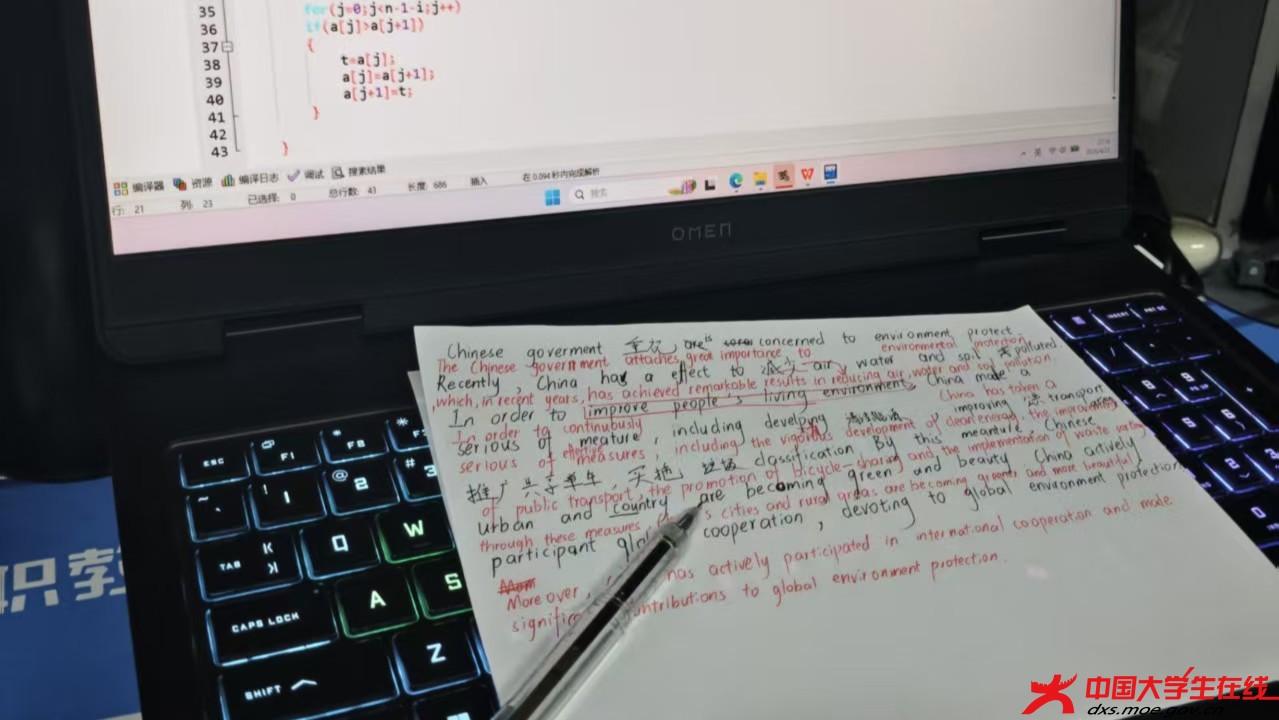 35 for(j=0;j<n-1-i;j++)
36 if(a[j]>a[j+1])
37 {
38 t=a[j];
39 a[j]=a[j+1];
40 a[j+1]=t;
41 }
42
43 }
编译器 资源 编译日志 调试 搜索结果
行: 21 列: 23 已选择: 0 总行数: 43 长度: 686 插入 在 0.094 秒内完成解析
搜索
英
OMEN
Chinese goverment 重视 are is concerned to environment protect
The Chinese government attaches great importance to environmental protection
Recently, China has a effect to 减少 air, water and soil polluted.
, which, in recent years, has achieved remarkable results in reducing air, water and soil pollution.
In order to improve people's living environment, China made a
In order to continuously China has taken a
serious of meature, including develpng improving transport
serious of effective measures, including the vigorous development of clean energy, the improvement
推广共享单车, 实施 classification. By this meanture, Chinese
of public transport, the promotion of bicycle-sharing and the implementation of waste
urban and country are becoming green and beauty. China actively
through these measures, cities and rural areas are becoming greener and more beautiful
participant cooperation, devoting to global environment protection
Moreover, has actively participated in international cooperation and made
contributions to global environment protection.
ESC F1 F8
~ ` ! 1 @ 2 # 3
TAB K Q W
CAPS LOCK A S
SHIFT Z
INSERT
职教
中国大学生在线
dxs.moe.gov.cn